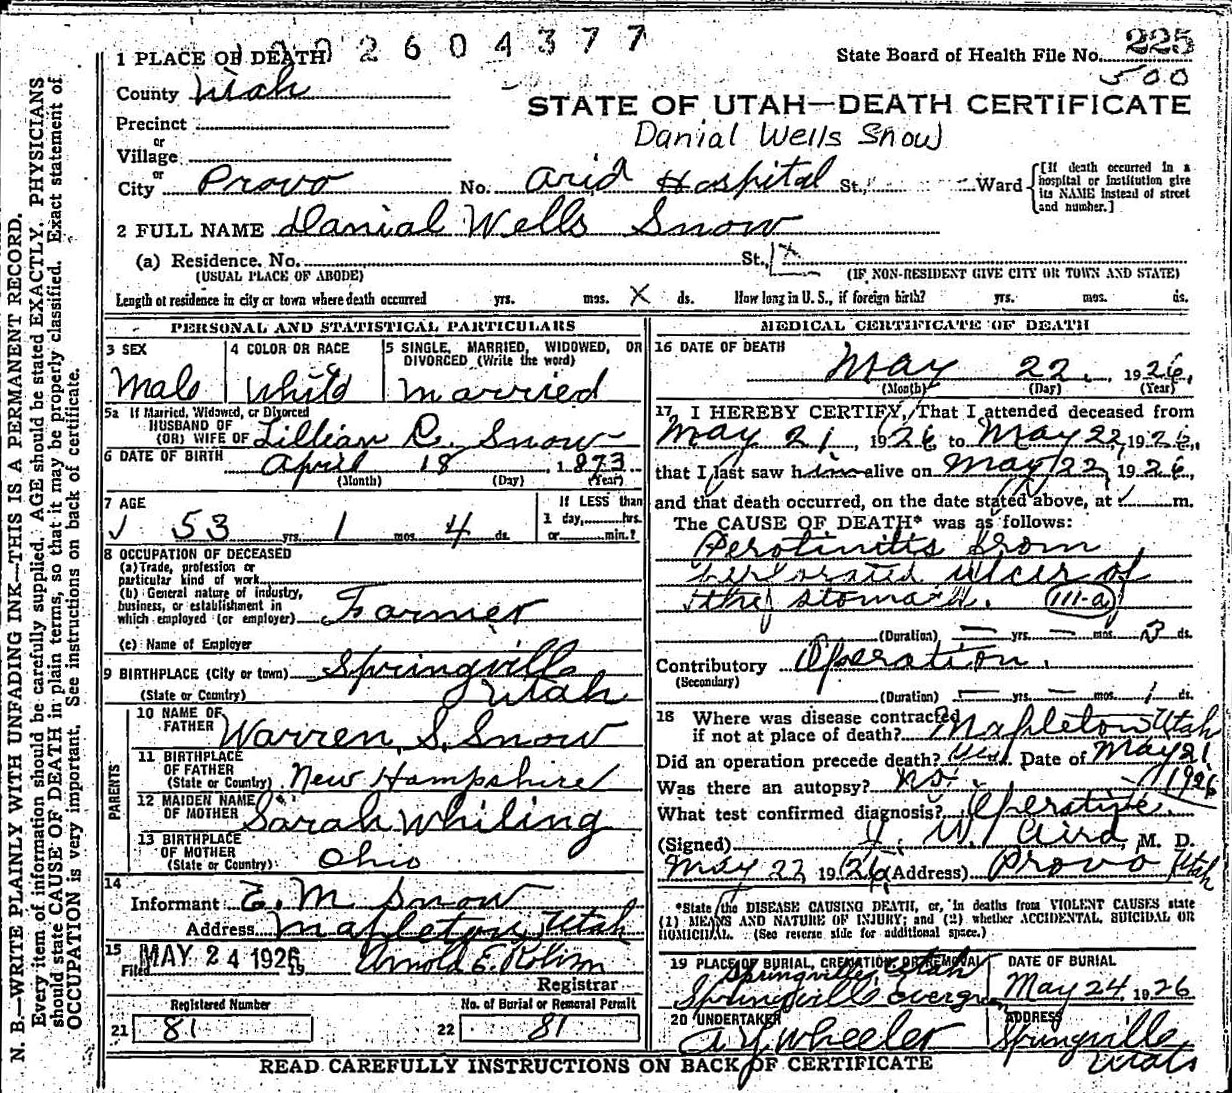 1 PLACE OF DEATH 2604377 State Board of Health File No. 225
500
County Utah
STATE OF UTAH—DEATH CERTIFICATE
Precinct
Danial Wells Snow
or
Village
or
City Provo No. Arid Hospital St., Ward [If death occurred in a hospital or institution give its NAME instead of street and number.]
2 FULL NAME Danial Wells Snow
(a) Residence. No. St., X
(USUAL PLACE OF ABODE) (IF NON-RESIDENT GIVE CITY OR TOWN AND STATE)
Length of residence in city or town where death occurred yrs. mos. X ds. How long in U. S., if foreign birth? yrs. mos. ds.
PERSONAL AND STATISTICAL PARTICULARS
3 SEX
4 COLOR OR RACE
5 SINGLE, MARRIED, WIDOWED, OR DIVORCED (Write the word)
Male White Married
5a If Married, Widowed, or Divorced
HUSBAND OF
(OR) WIFE OF Lillian C. Snow
6 DATE OF BIRTH April 18 1873
(Month) (Day) (Year)
7 AGE
If LESS than
53 yrs. 1 mos. 4 ds. 1 day,......hrs.
or......min.?
8 OCCUPATION OF DECEASED
(a) Trade, profession or
particular kind of work
(b) General nature of industry,
business, or establishment in
which employed (or employer) Farmer
(c) Name of Employer
9 BIRTHPLACE (City or town) Springville
(State or Country) Utah
PARENTS
10 NAME OF
FATHER Warren S. Snow
11 BIRTHPLACE
OF FATHER
(State or Country) New Hampshire
12 MAIDEN NAME
OF MOTHER Sarah Whiling
13 BIRTHPLACE
OF MOTHER
(State or Country) Ohio
14
Informant E. M. Snow
Address Mapleton, Utah
15
Filed MAY 24 1926 19 Arnold E. Robison
Registrar
Registered Number No. of Burial or Removal Permit
21 81 22 81
MEDICAL CERTIFICATE OF DEATH
16 DATE OF DEATH
May 22, 1926,
(Month) (Day) (Year)
17 I HEREBY CERTIFY, That I attended deceased from
May 21, 1926 to May 22, 1926,
that I last saw him alive on May 22, 1926,
and that death occurred, on the date stated above, at m.
The CAUSE OF DEATH* was as follows:
Perotinitis from
perforated ulcer of
the stomach. III-a
(Duration) — yrs. — mos. 3 ds.
Contributory Operation.
(Secondary)
(Duration) — yrs. — mos. 1 ds.
18 Where was disease contracted
if not at place of death? Mapleton Utah
Did an operation precede death? yes Date of May 21
Was there an autopsy? no. 1926
What test confirmed diagnosis? Operative.
(Signed) J. W. Aird, M. D.
May 22 1926 (Address) Provo Utah
*State the DISEASE CAUSING DEATH, or, in deaths from VIOLENT CAUSES state
(1) MEANS AND NATURE OF INJURY; and (2) whether ACCIDENTAL, SUICIDAL OR
HOMICIDAL. (See reverse side for additional space.)
19 PLACE OF BURIAL, CREMATION, OR REMOVAL DATE OF BURIAL
Springville, Utah
Springville Evergreen May 24, 1926
20 UNDERTAKER ADDRESS
A. Y. Wheeler Springville
Utah
READ CAREFULLY INSTRUCTIONS ON BACK OF CERTIFICATE
N. B.—WRITE PLAINLY WITH UNFADING INK—THIS IS A PERMANENT RECORD.
Every item of information should be carefully supplied. AGE should be stated EXACTLY. PHYSICIANS
should state CAUSE OF DEATH in plain terms, so that it may be properly classified. Exact statement of
OCCUPATION is very important. See instructions on back of certificate.